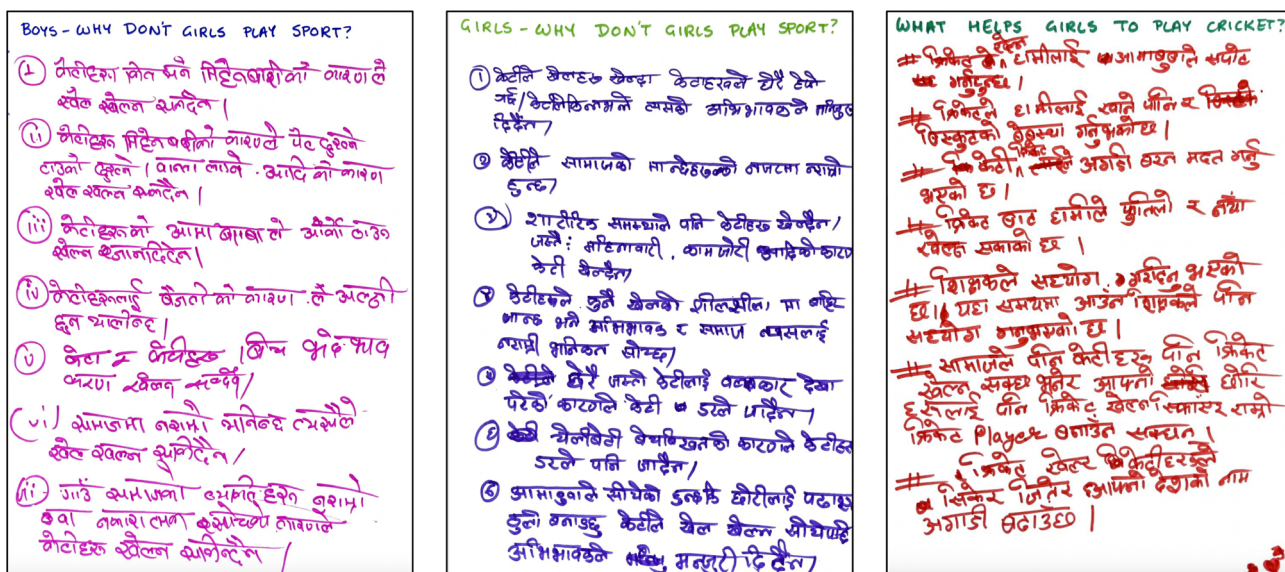 BOYS - WHY DON'T GIRLS PLAY SPORT?
① केटीहरू भने मिहिनावारीको कारणले
खेल खेल्न सक्दैन ।
ii केटीहरू मिहिनावारीको कारणले पेट दुख्ने
टाउको दुख्ने । वान्ता लाग्ने आदि को कारण
खेल खेल्न सक्दैन ।
iii केटीहरूको आमा बाबाले अर्को ठाउँ
खेल्न जान दिदैन ।
iv केटीहरूलाई को कारण ले
v केटा र केटीहरू बिच भेदभाव
कारण खेल्न
vi) समाजमा नराम्रो भनिन्छ त्यसैले
खेल खेल्न सकिदैन /
vii गाउँ समाजका नराम्रो
नकारात्मक कारणले
केटीहरू खेल्न सकिन्दैन /
GIRLS - WHY DON'T GIRLS PLAY SPORT?
① केटीले खेलहरू खेल्दा केटाहरूले धेरै
अभिभावकले
दिदैन /
② केटीले सामाजको मान्छेहरूको नजरमा नराम्रो
हुन्छ /
शारीरिक समस्याले पनि केटीहरू खेल्दैन /
जस्तै: महिनावारी, कमजोरी को कारण
केटी खेल्दैन /
केटीहरूले कुनै खेलको शीलसीला मा बाहिर
भने अभिभावक र समाज त्यसलाई
नराम्री सोच्छ /
धेरै जस्तो केटीलाई बलत्कार देखा
परेको कारणले केटी डरले जादैन /
चेलीबेटी बेचबिखनको कारणले केटीहरू
डरले पनि जादैन /
आमाबुवाले सोचेको हुन्छकि छोरीलाई पढाएर
ठुलो बनाउछु केटीले खेल खेल्न
अभिभावकले मन्जुरी दिदैन /
WHAT HELPS GIRLS TO PLAY CRICKET?
# क्रिकेट खेल्न हामीलाई आमाबुबाले सपोट
गर्नुहुन्छ ।
# क्रिकेटले हामीलाई खाने पानि र
बिस्कुटको गर्नुभएको छ ।
# केटी क्रिकेट अगाडी बढ्न मदत गर्नु
भएको छ ।
# क्रिकेट बाट हामीले फुर्तिलो र नयाँ
खेल्न सकाको छ ।
# शिक्षकले सहयोग गरिदिनु भएको
छ । यहा समयमा आउन शिक्षकले पनि
सहयोग गर्नुभएको छ ।
# सामाजले पनि केटीहरू पनि क्रिकेट
खेल्न सक्छ भनेर आफ्नो छोरि
हरूलाई पनि क्रिकेट खेल्न सिकाएर राम्रो
क्रिकेट Player बनाउन सक्छन ।
# क्रिकेट खेलेर केटीहरूले
सिकेर जितेर आफ्नो देशको नाम
अगाडी बढाउँछ ।